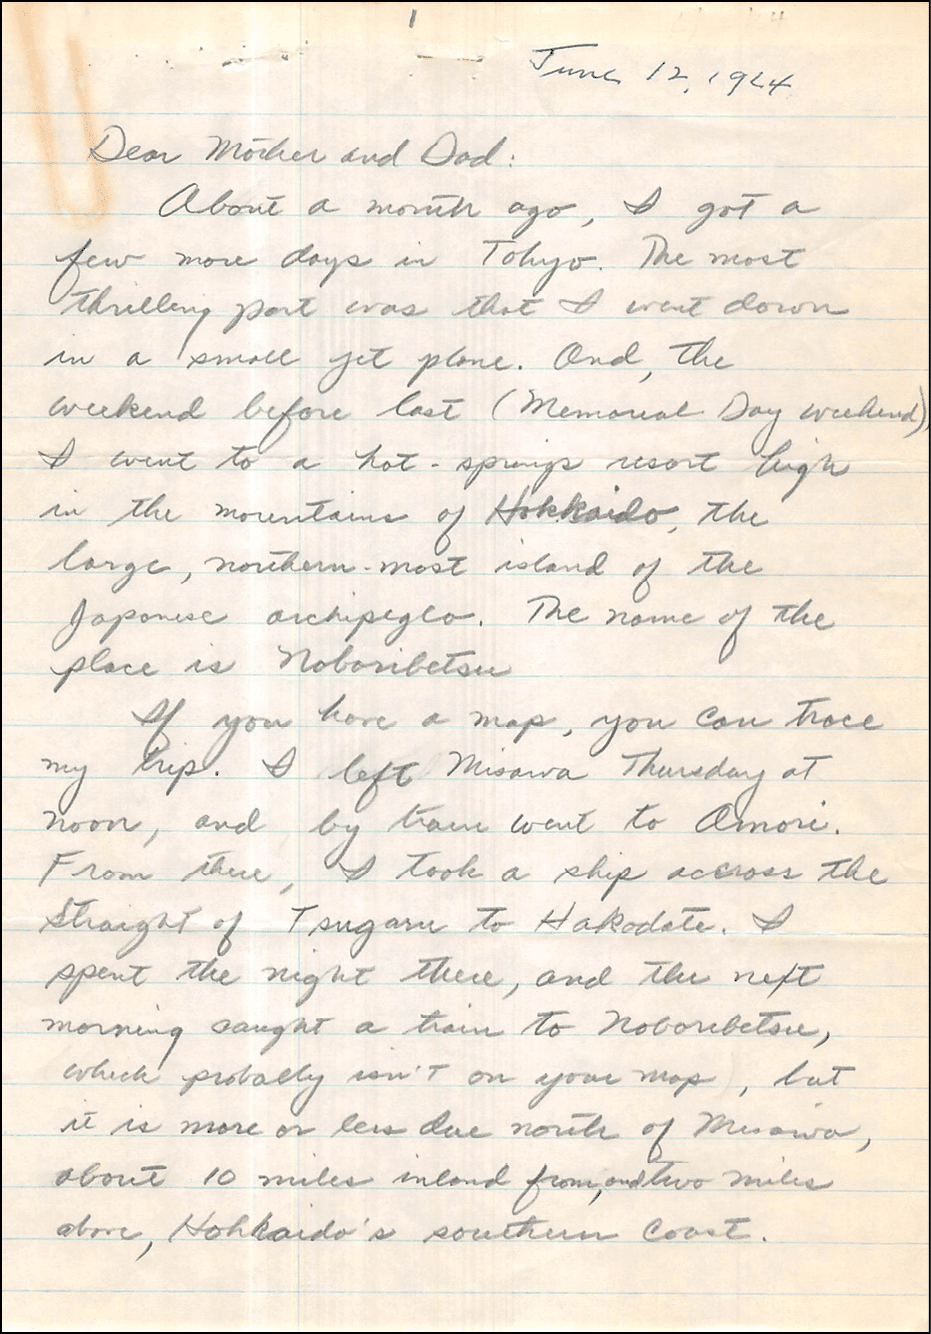 June 12, 1964
Dear Mother and Dad:
About a month ago, I got a
few more days in Tokyo. The most
thrilling part was that I went down
in a small jet plane. And, the
weekend before last (Memorial Day weekend),
I went to a hot-springs resort high
in the mountains of Hokkaido, the
large, northern-most island of the
Japanese archipeglo. The name of the
place is Noboribetsu
If you have a map, you can trace
my trip. I left Misawa Thursday at
noon, and by train went to Omori.
From there, I took a ship accross the
Straight of Tsugaru to Hakodate. I
spent the night there, and the next
morning caught a train to Noboribetsu,
which probally isn't on your map, but
it is more or less due north of Misawa,
about 10 miles inland from, and two miles
above, Hokkaido's southern coast.